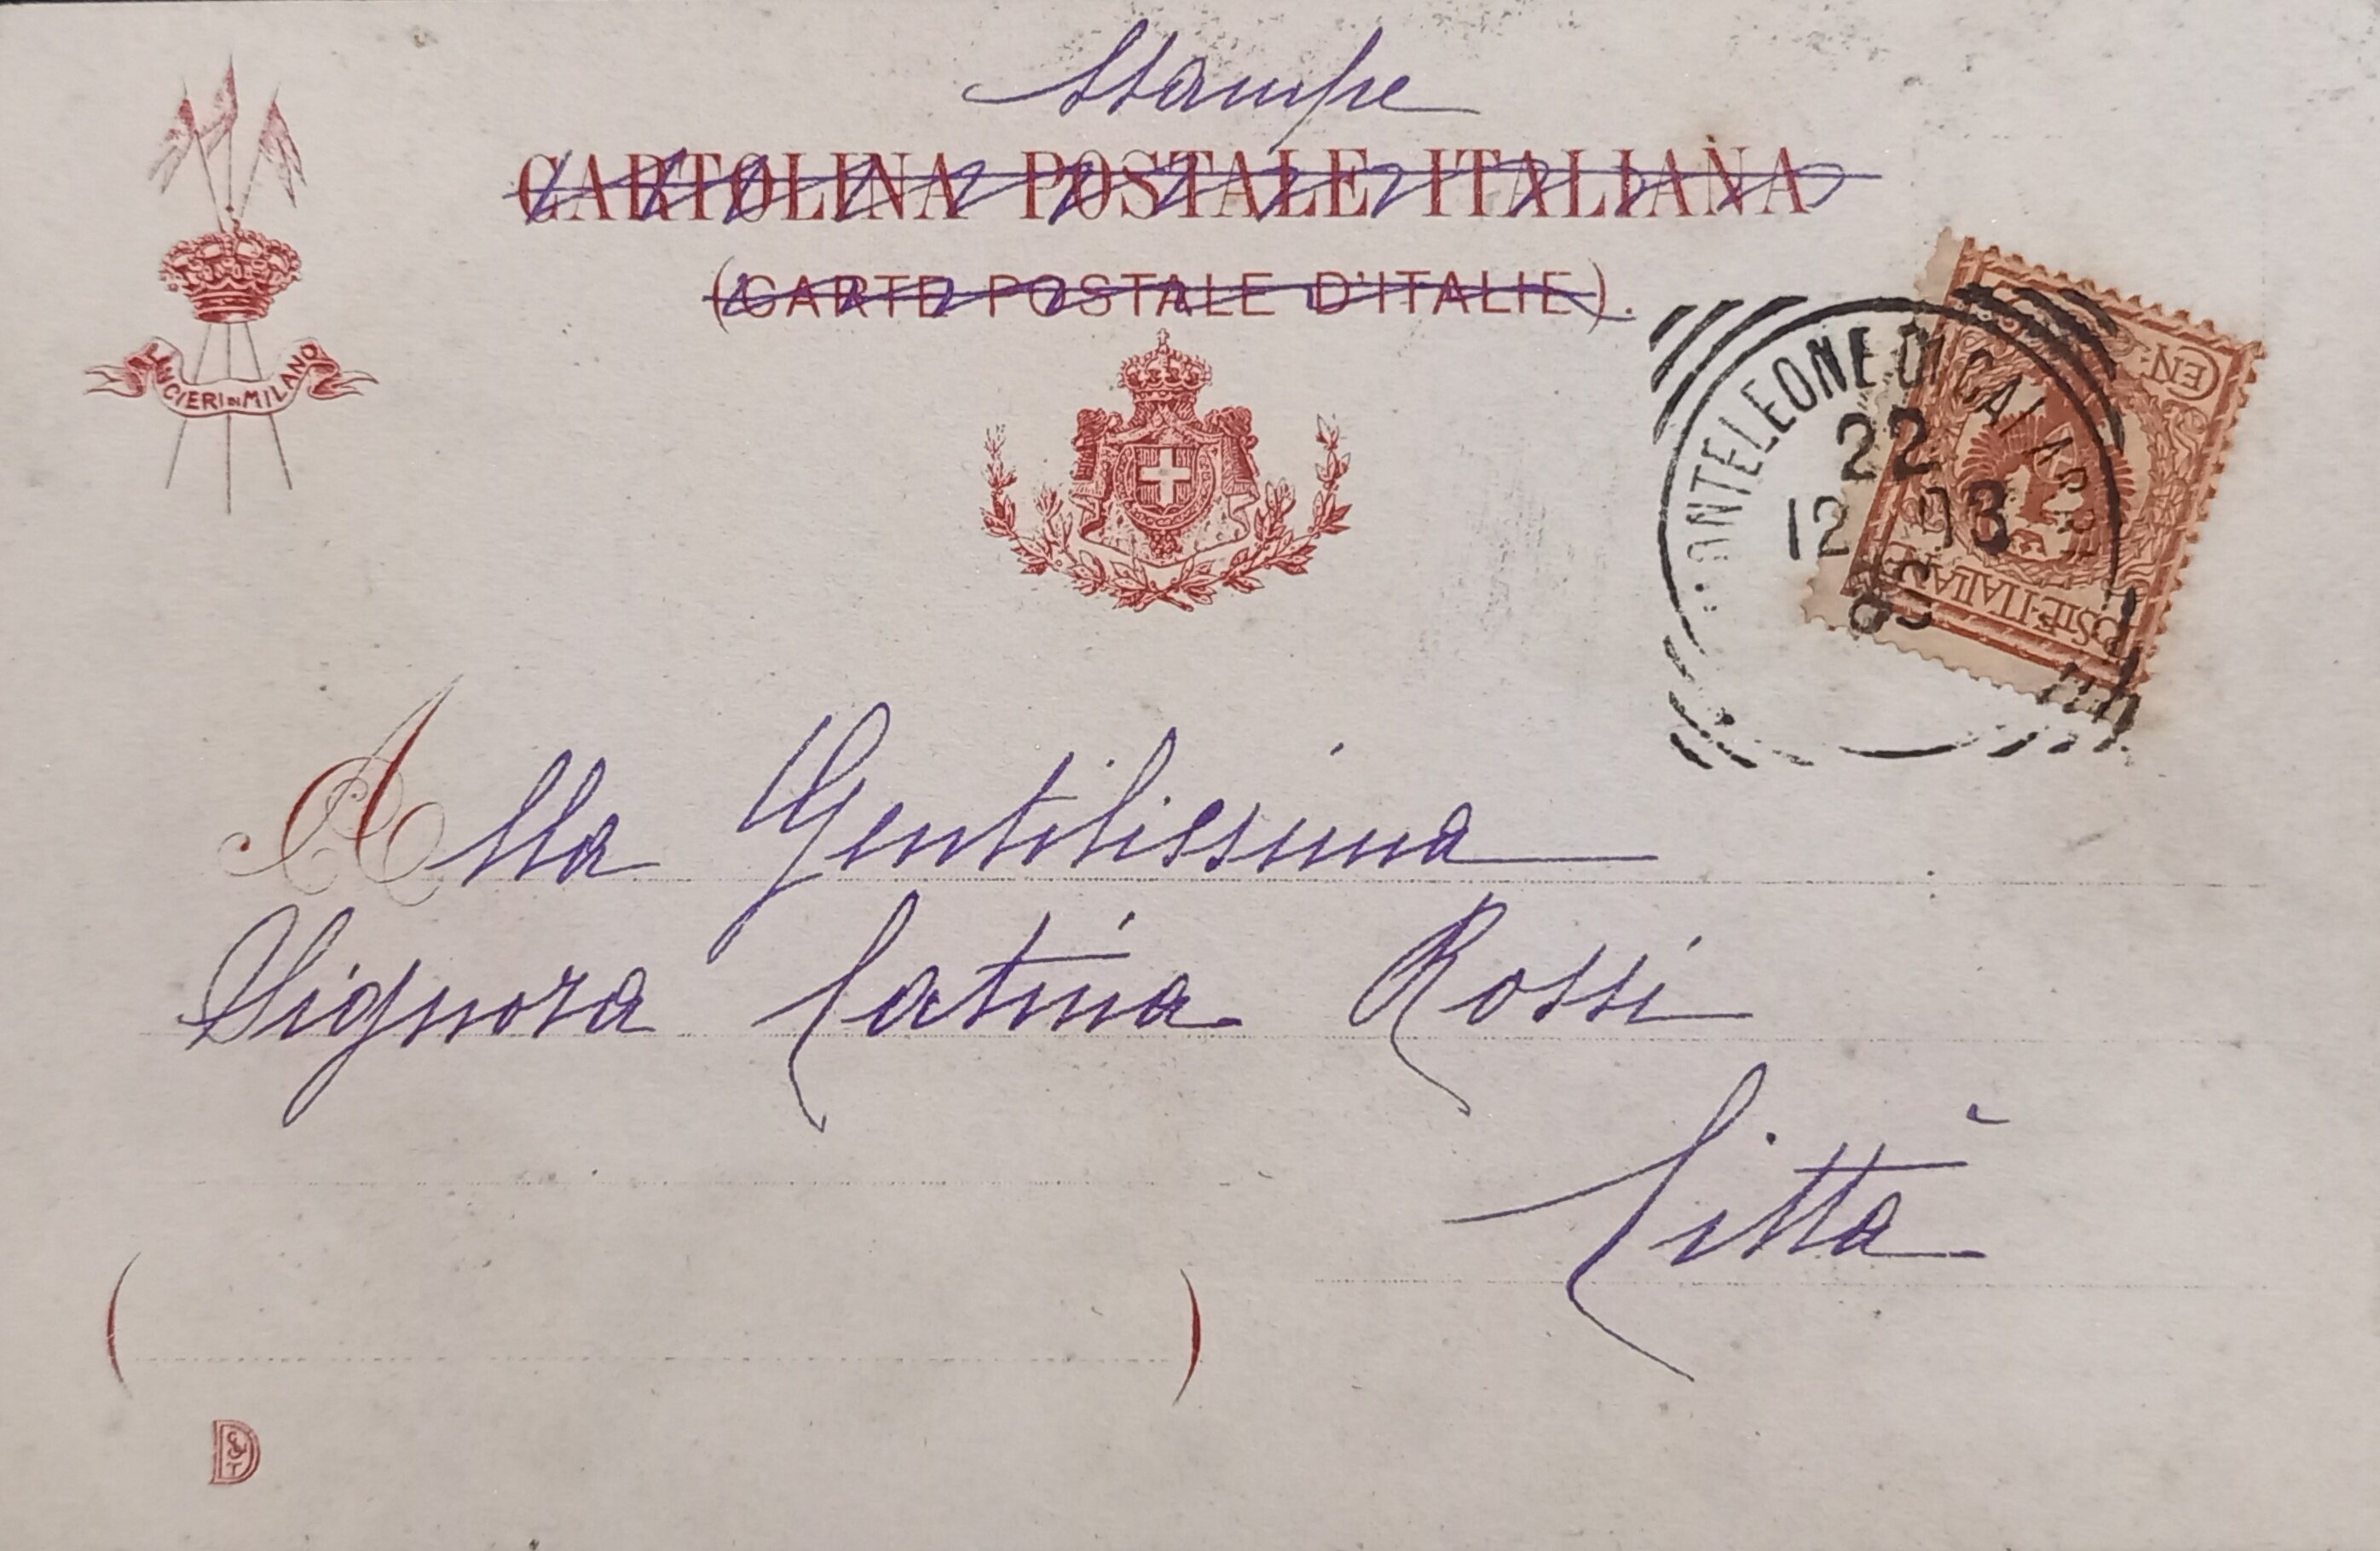 Stampe
CARTOLINA POSTALE ITALIANA
(CARTE POSTALE D'ITALIE).
LANCIERI DI MILANO
MONTELEONE DI CALABRIA
22
12 03
CEN.
POSTE·ITALIANE
Alla Gentilissima
Signora Catina Rossi
Città
( )